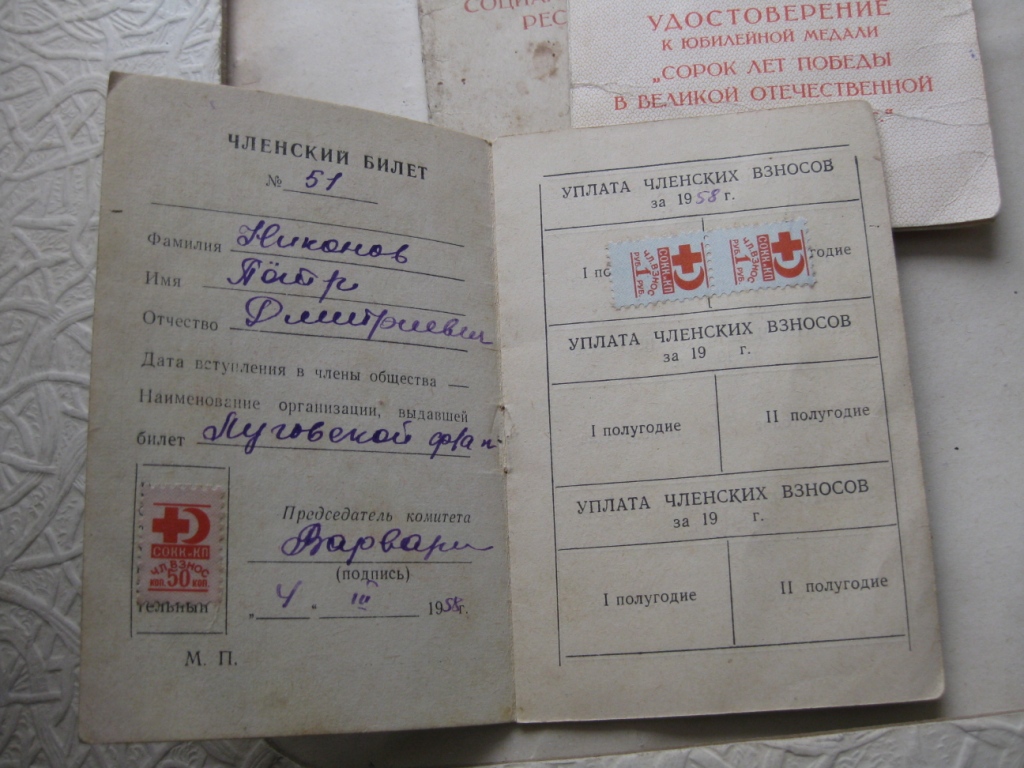 СОЦИА
РЕС
УДОСТОВЕРЕНИЕ
К ЮБИЛЕЙНОЙ МЕДАЛИ
„СОРОК ЛЕТ ПОБЕДЫ
В ВЕЛИКОЙ ОТЕЧЕСТВЕННОЙ
ЧЛЕНСКИЙ БИЛЕТ
№ 51
Фамилия Никонов
Имя Пётр
Отчество Дмитриевич
Дата вступления в члены общества —
Наименование организации, выдавшей
билет Луговской
СОКК и КП
ЧЛ. ВЗНОС
КОП. 50 КОП.
тельный
Председатель комитета
(подпись)
„ 4 " III 1958 г.
М. П.
УПЛАТА ЧЛЕНСКИХ ВЗНОСОВ
за 1958 г.
I по
угодие
СОКК и КП
ЧЛ. ВЗНОС
РУБ. 1 РУБ.
СОКК и КП
ЧЛ. ВЗНОС
РУБ. 1 РУБ.
УПЛАТА ЧЛЕНСКИХ ВЗНОСОВ
за 19 г.
I полугодие II полугодие
УПЛАТА ЧЛЕНСКИХ ВЗНОСОВ
за 19 г.
I полугодие II полугодие